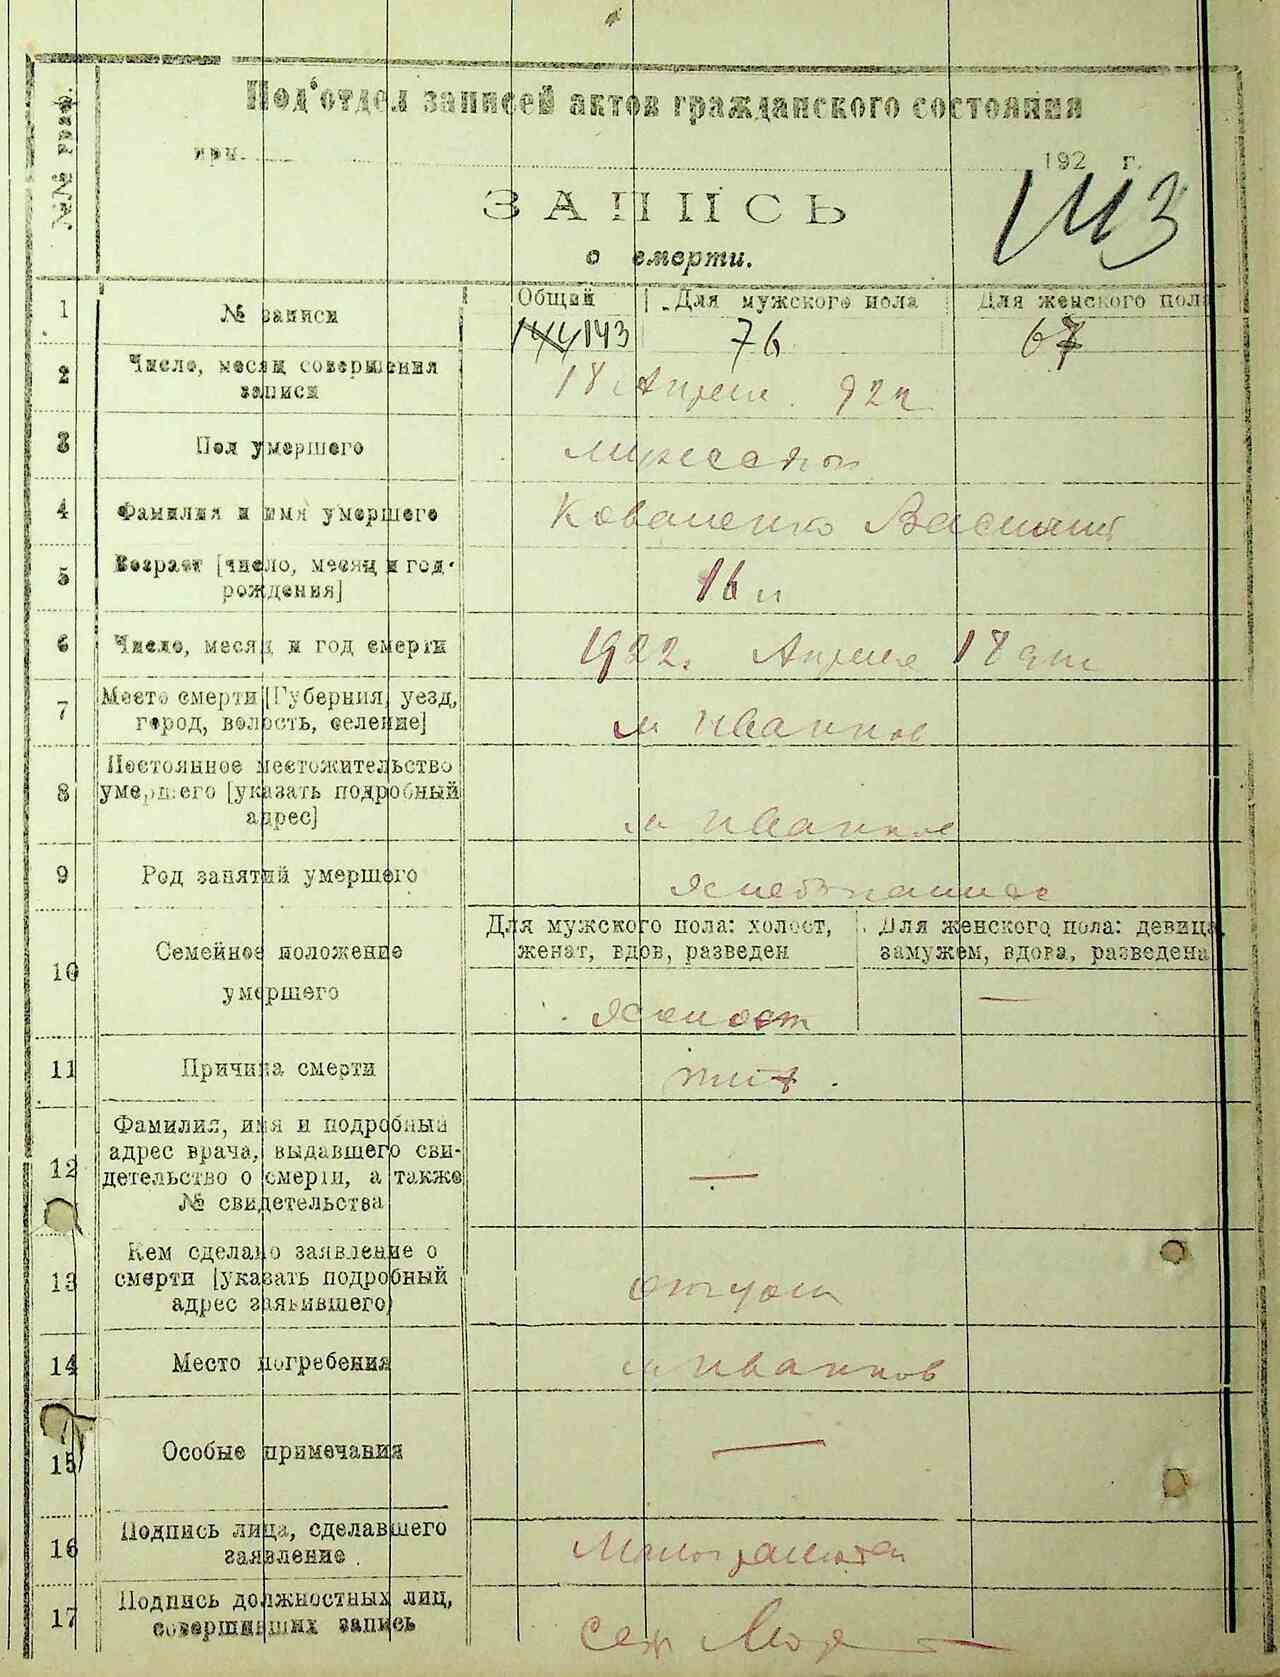 №№ граф.
Под'отдел записей актов гражданского состояния
при 192 г.
ЗАПИСЬ
о смерти.
143
1 № записи Общий Для мужского пола Для женского пола
144 143 76 67
2 Число, месяц совершения
записи
18 Апреля 922
3 Пол умершего
4 Фамилия и имя умершего Коваленко Василий
5 Возраст [число, месяц и год
рождения]
16 л
6 Число, месяц и год смерти 1922. Апреля 18 дня
7 Место смерти [Губерния, уезд,
город, волость, селение]
м Иванков
8 Постоянное местожительство
умершего [указать подробный
адрес]
м Иванков
9 Род занятий умершего
10 Семейное положение
умершего
Для мужского пола: холост,
женат, вдов, разведен
Для женского пола: девица,
замужем, вдова, разведена
холост —
11 Причина смерти тиф.
12 Фамилия, имя и подробный
адрес врача, выдавшего сви-
детельство о смерти, а также
№ свидетельства
—
13 Кем сделано заявление о
смерти [указать подробный
адрес заявившего]
отцом
14 Место погребения м Иванков
15 Особые примечания —
16 Подпись лица, сделавшего
заявление.
17 Подпись должностных лиц,
совершивших запись